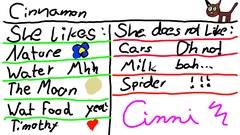 Cinnamon
She Likes:
Nature
Water Mhh
The Moon
Wat Food yea!
Timothy
She does not Like:
Cars Oh no!
Milk bah...
Spider !!!
Cinni